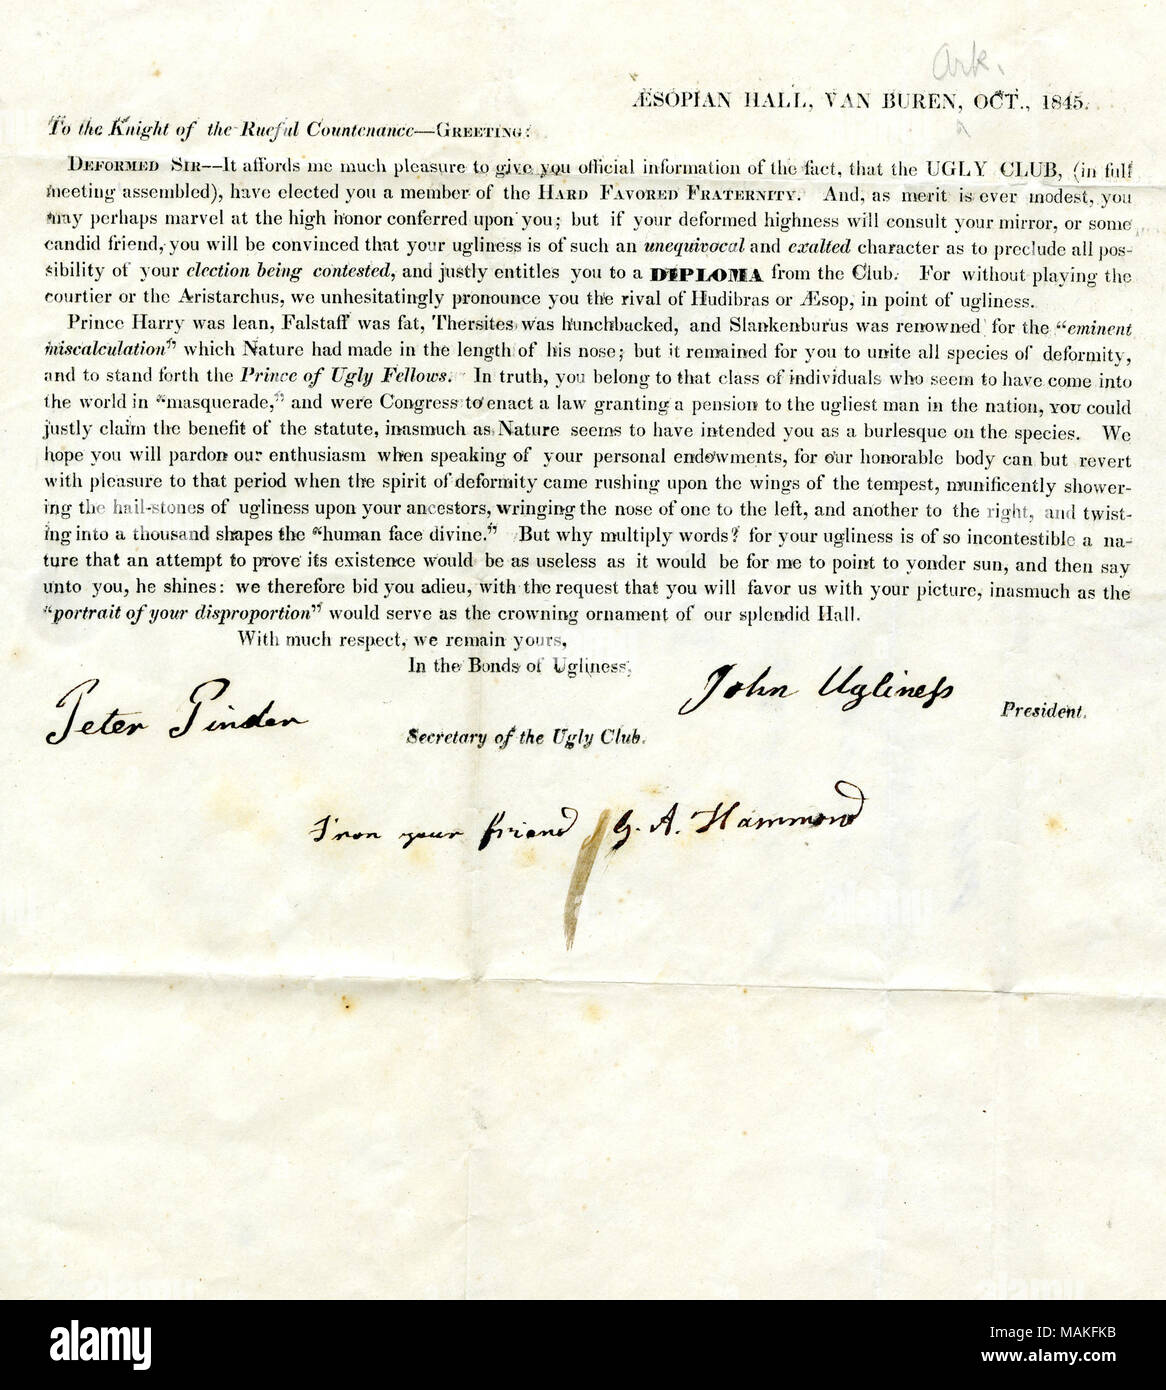 Ark.
ÆSOPIAN HALL, VAN BUREN, OCT., 1845.
To the Knight of the Rueful Countenance—GREETING:
DEFORMED SIR--It affords me much pleasure to give you official information of the fact, that the UGLY CLUB, (in full
meeting assembled), have elected you a member of the HARD FAVORED FRATERNITY. And, as merit is ever modest, you
may perhaps marvel at the high honor conferred upon you; but if your deformed highness will consult your mirror, or some
candid friend, you will be convinced that your ugliness is of such an unequivocal and exalted character as to preclude all pos-
sibility of your election being contested, and justly entitles you to a DIPLOMA from the Club. For without playing the
courtier or the Aristarchus, we unhesitatingly pronounce you the rival of Hudibras or Æsop, in point of ugliness.
Prince Harry was lean, Falstaff was fat, Thersites was hunchbacked, and Slankenburus was renowned for the "eminent
miscalculation" which Nature had made in the length of his nose; but it remained for you to unite all species of deformity,
and to stand forth the Prince of Ugly Fellows. In truth, you belong to that class of individuals who seem to have come into
the world in "masquerade," and were Congress to enact a law granting a pension to the ugliest man in the nation, YOU could
justly claim the benefit of the statute, inasmuch as Nature seems to have intended you as a burlesque on the species. We
hope you will pardon our enthusiasm when speaking of your personal endowments, for our honorable body can but revert
with pleasure to that period when the spirit of deformity came rushing upon the wings of the tempest, munificently shower-
ing the hail-stones of ugliness upon your ancestors, wringing the nose of one to the left, and another to the right, and twist-
ing into a thousand shapes the "human face divine." But why multiply words? for your ugliness is of so incontestible a na-
ture that an attempt to prove its existence would be as useless as it would be for me to point to yonder sun, and then say
unto you, he shines: we therefore bid you adieu, with the request that you will favor us with your picture, inasmuch as the
"portrait of your disproportion" would serve as the crowning ornament of our splendid Hall.
With much respect, we remain yours,
In the Bonds of Ugliness,
John Ugliness
President.
Peter Pinder
Secretary of the Ugly Club.
From your friend G. A. Hammond
alamy
Image ID: MAKFKB
www.alamy.com